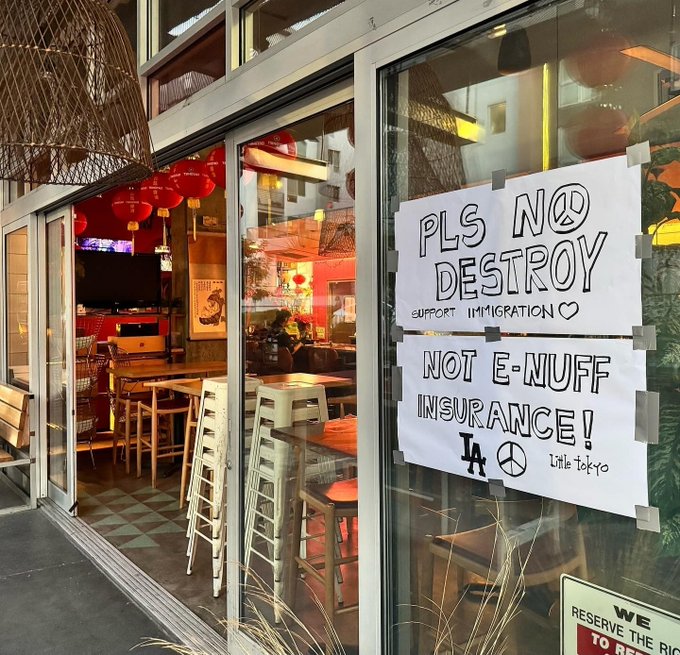 PLS NO
DESTROY
SUPPORT IMMIGRATION
NOT E-NUFF
INSURANCE!
LA
Little tokyo
WE
RESERVE THE RI
TO RE